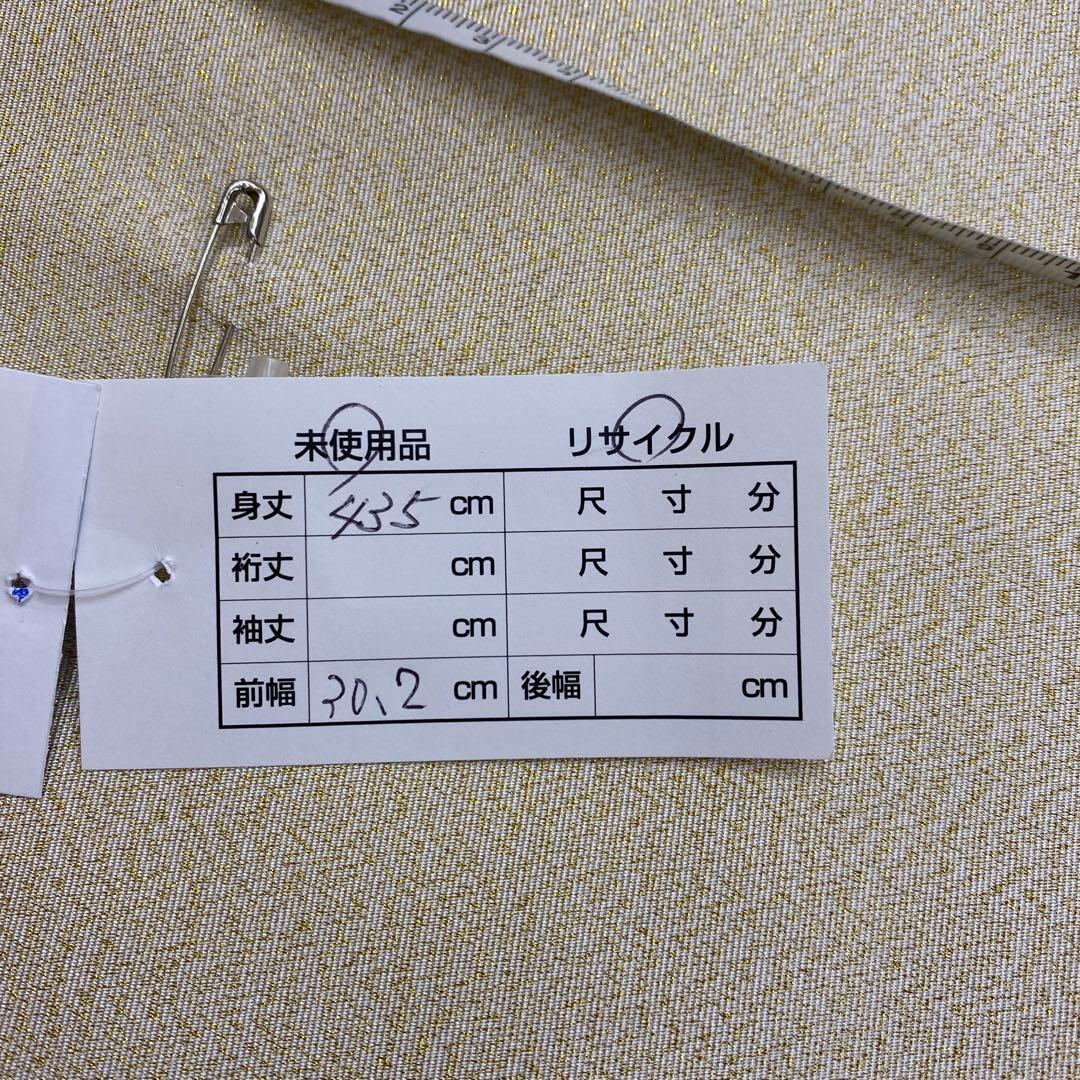 未使用品 リサイクル
身丈 435 cm 尺 寸 分
裄丈 cm 尺 寸 分
袖丈 cm 尺 寸 分
前幅 30.2 cm 後幅 cm